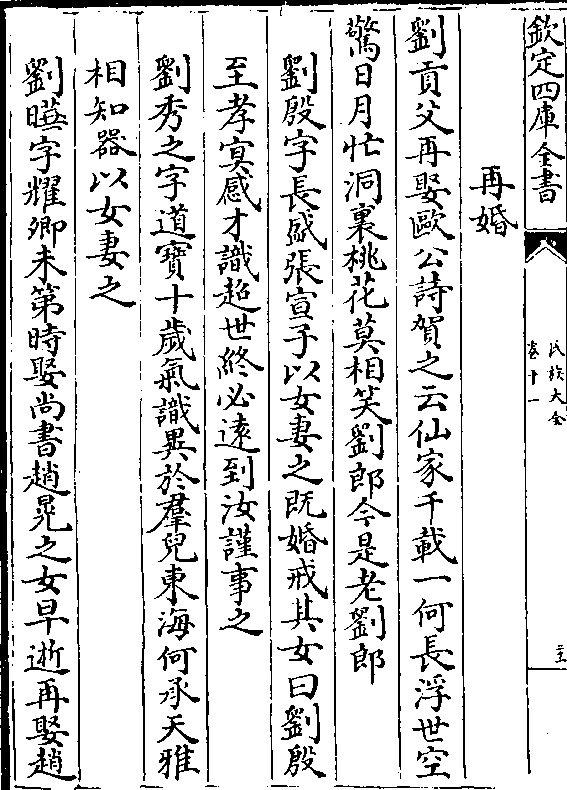 欽定四庫全書
氏族大全
卷十一
再婚
劉貢父再娶歐公詩賀之云仙家千載一何長浮世空
驚日月忙洞裏桃花莫相笑劉郎今是老劉郎
劉殷字長盛張宣子以女妻之既婚戒其女曰劉殷
至孝㝠感才識超世終必遠到汝謹事之
劉秀之字道寶十歲氣識異於羣兒東海何承天雅
相知器以女妻之
劉曄字耀卿未第時娶尚書趙晃之女早逝再娶趙